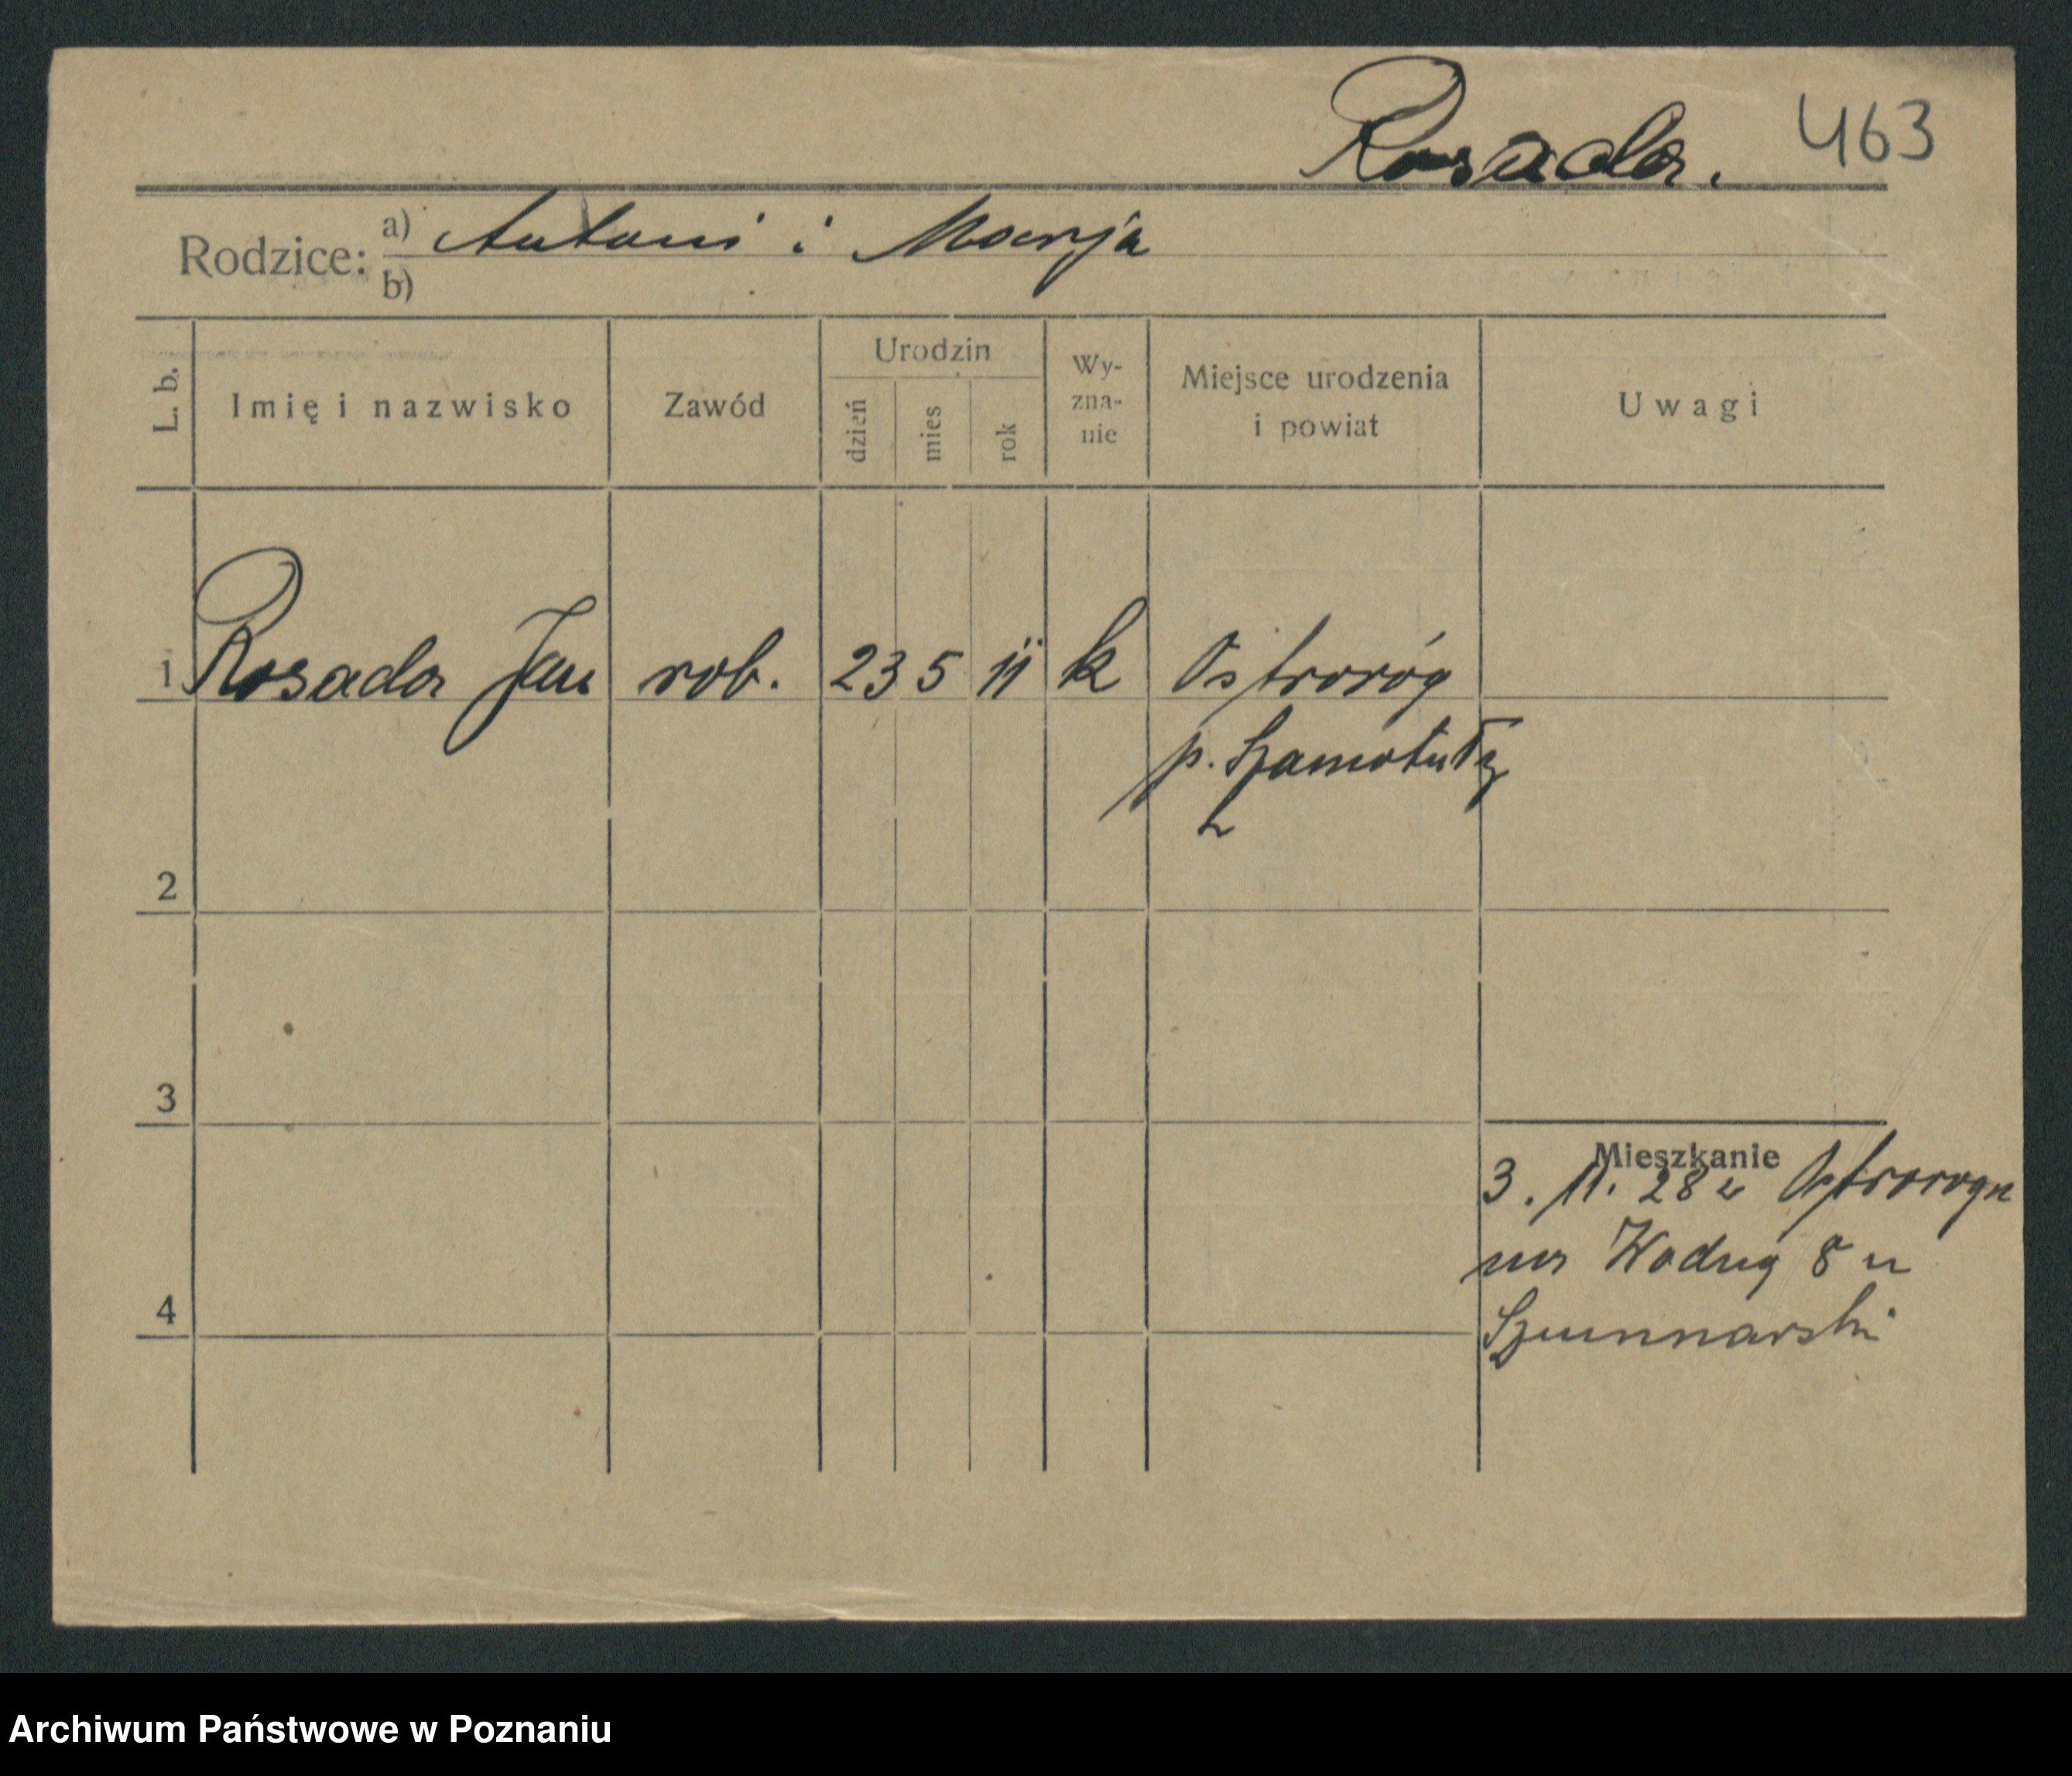 Rosada. 463
Rodzice: a) Antoni i Marja
b)
L. b. Imię i nazwisko Zawód Urodzin dzień mies rok Wy-zna-nie Miejsce urodzenia i powiat Uwagi
1 Rosada Jan rob. 23 5 11 k Ostroróg
p. Szamotuły
2
3
Mieszkanie
3. 11. 28 z Ostroroga
na Wodną 8 u
4
Archiwum Państwowe w Poznaniu